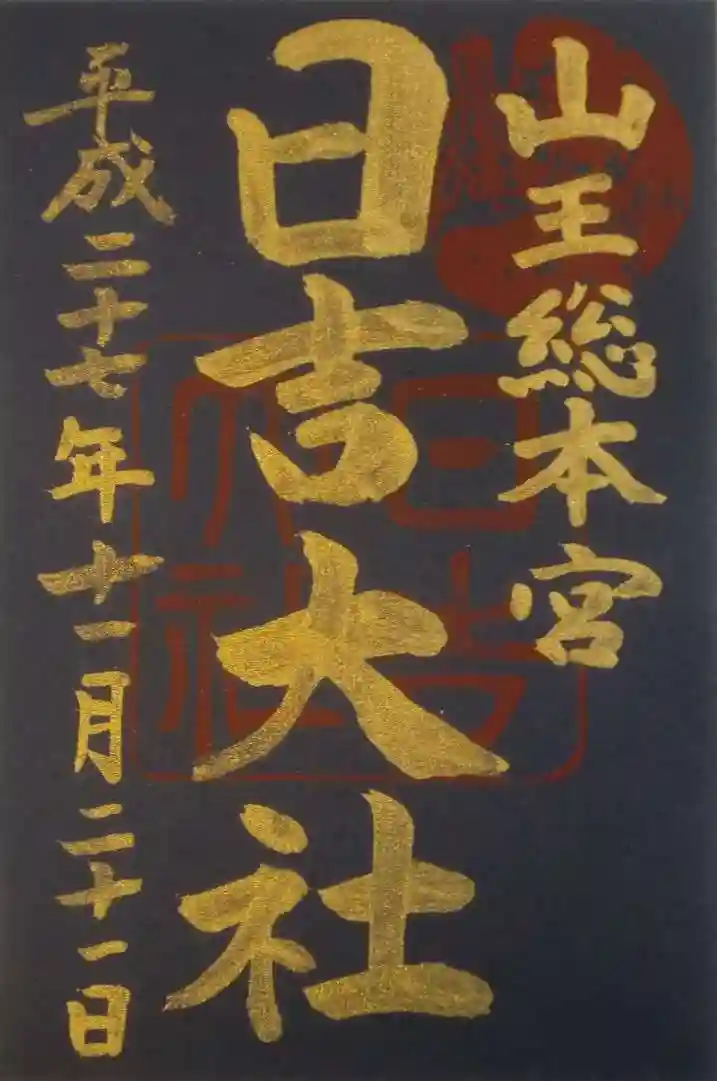 山王総本宮
日吉大社
平成二十七年十一月二十一日
日吉
大社